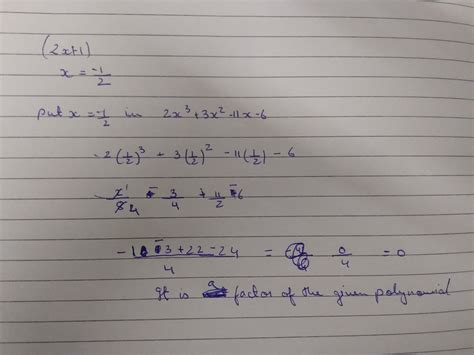 (2x+1)
x = -1/2
put x = -1/2 in 2x³+3x²-11x-6
2(1/2)³ + 3(1/2)² - 11(1/2) - 6
3/4 + 11/2 - 6
3+22-24 / 4 = 0/4 = 0
It is a factor of the given polynomial